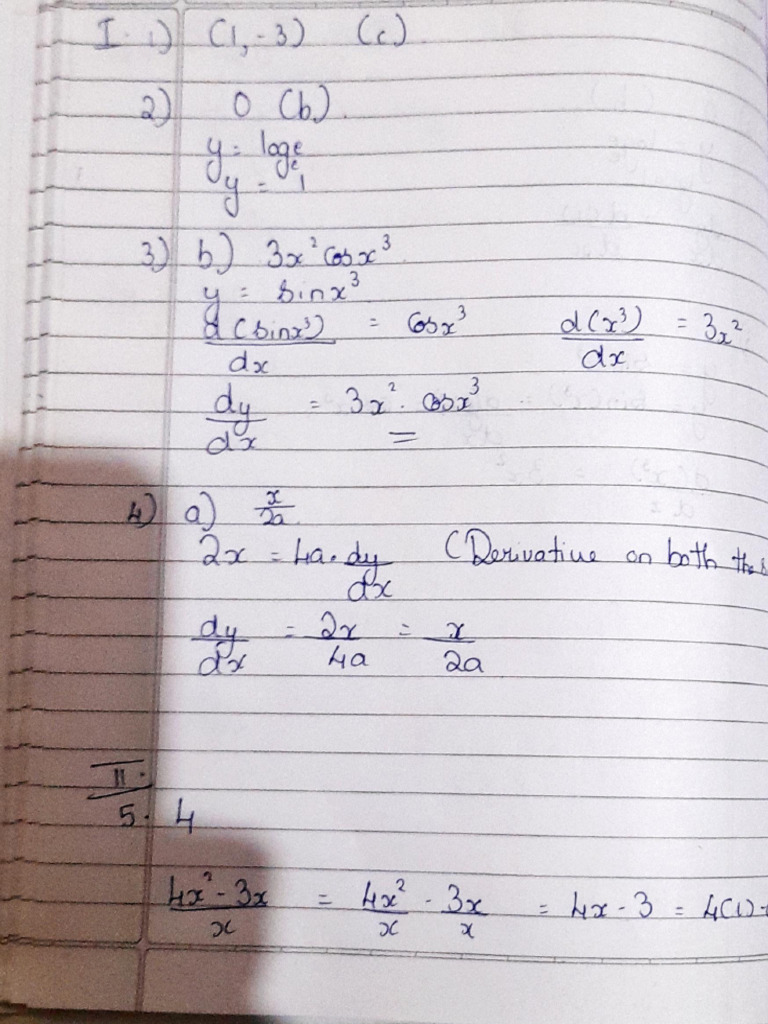 I. 1) (1, -3) (c)
2) 0 (b)
y = log_e^e
y = 1
3) b) 3x² cosx³
y = sinx³
d(sinx³)/dx = cosx³ d(x³)/dx = 3x²
dy/dx = 3x² · cosx³
4) a) x/2a
2x = 4a · dy/dx (Derivative on both the
dy/dx = 2x/4a = x/2a
II.
5. 4
4x² - 3x/x = 4x²/x - 3x/x = 4x - 3 = 4(1) -